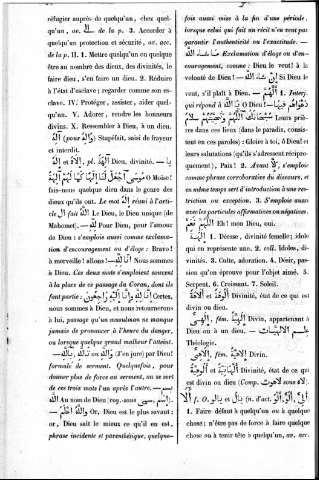 réfugier auprès de quelqu'un, chez quel-
qu'un, ac. الى de la p. 3. Accorder à
quelqu'un protection et sécurité, ac. acc.
de la p. II. 1. Mettre quelqu'un ou quelque
être au nombre des dieux, des divinités, le
faire dieu, s'en faire un dieu. 2. Réduire
à l'état d'esclave; regarder comme son es-
clave. IV. Protéger, assister, aider quel-
qu'un. V. Adorer, rendre les honneurs
divins. X. Ressembler à Dieu, à un dieu.
أله (pour وله) Stupéfait, saisi de frayeur
et interdit.
إله et الاه, pl. آلهة Dieu, divinité. — يا
موسى اجعل لنا إلها كما لهم آلهة O Moïse!
fais-nous quelque dieu dans le genre des
dieux qu'ils ont. Le mot إله réuni à l'arti-
cle ال fait الله Le Dieu, le Dieu unique (de
Mahomet). — لله Pour Dieu, pour l'amour
de Dieu : s'emploi aussi comme exclama-
tion d'encouragement ou d'éloge : Bravo!
à merveille! allons! — إنا لله Nous sommes
à Dieu. Ces deux mots s'emploient souvent
à la place de ce passage du Coran, dont ils
font partie : إنا لله وإنا إليه راجعون Certes,
nous sommes à Dieu, et nous retournerons
à lui, passage qu'un musulman ne manque
jamais de prononcer à l'heure du danger,
ou lorsque quelque grand malheur l'atteint.
— والله, بالله ou تالله (J'en jure) par Dieu!
formule de serment. Quelquefois, pour
donner plus de force au serment, on se sert
de ces trois mots l'un après l'autre. — بسم
الله Au nom de Dieu (voy. sous سمى, اسم).
— والله أعلم Or, Dieu est le plus savant;
or, Dieu sait le mieux ce qu'il en est,
phrase incidente et parenthétique, quelque-
fois aussi mise à la fin d'une période,
lorsque celui qui fait un récit n'en veut pas
garantir l'authenticité ou l'exactitude. —
ما شاء الله Exclamation d'éloge ou d'en-
couragement, comme : Dieu le veut! à la
volonté de Dieu! — إن شاء الله Si Dieu le
veut, s'il plaît à Dieu. — اللهم 1. Interj.
qui répond à يا الله O Dieu! — دعواهم فيها
سبحانك اللهم وتحيتهم سلام Leurs priè-
res dans ces lieux (dans le paradis, consis-
tent en ces paroles) : Gloire à toi, ô Dieu! et
leurs salutations (qu'ils s'adressent récipro-
quement), : Paix! 2. Avant إلا, s'emploie
comme phrase corroborative du discours, et
en même temps sert d'introduction à une res-
triction ou exception. 3. S'emploie aussi
avec les particules affirmatives ou négatives.
— اللهم نعم Eh! mon Dieu, oui.
إلهة 1. Déesse, divinité femelle; idole
qui en représente une. 2. coll. Idoles, di-
vinités. 3. Culte, adoration. 4. Désir, pas-
sion qu'on éprouve pour l'objet aimé. 5.
Serpent. 6. Croissant. 7. Soleil.
ألوهة et ألوهية Divinité, état de ce qui est
divin ou dieu.
إلهي, fém. إلهية Divin, appartenant à
Dieu ou à un dieu. — علم الإلهيات
Théologie.
الاهي, fém. الاهية Divin.
ألهانية et ألوهية Divinité, état de ce qui
est divin ou dieu (Comp. لاهوت sous لاه).
ألا f. O. يألو et يال (n. d'act. ألو, ألو, ألي)
1. Faire défaut à quelqu'un ou à quelque
chose; n'être pas de force à faire quelque
chose ou à tenir tête à quelqu'un, av. acc.